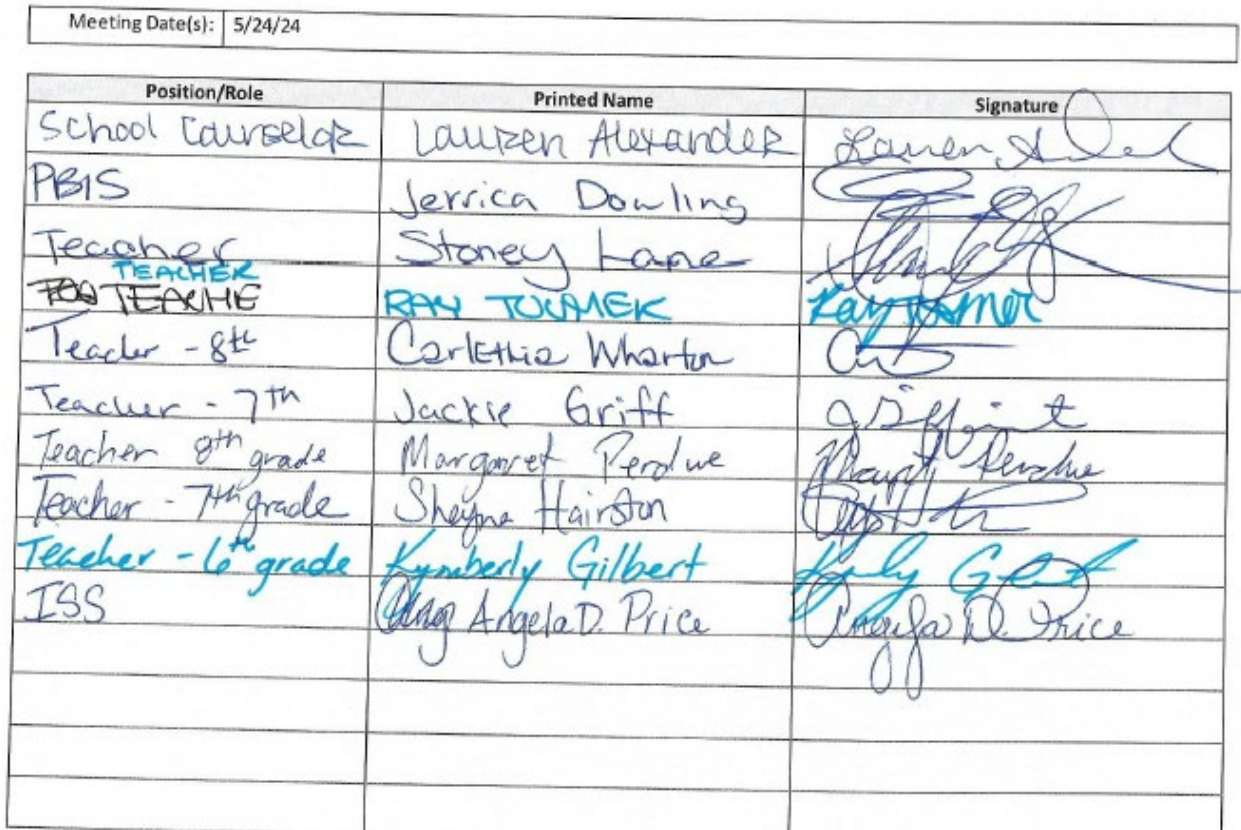 Meeting Date(s): 5/24/24
Position/Role Printed Name Signature
School Counselor Lauren Alexander Lauren
PBIS Jerrica Dowling
Teacher Stoney Lane
TEACHER
TEACHE RAY Ray
Teacher - 8th Carlethia Wharton
Teacher - 7th Jackie Griff
Teacher 8th grade Margaret Perdue Perdue
Teacher - 7th grade Shayna Hairston
Teacher - 6th grade Kymberly Gilbert
ISS Ang Angela D. Price Angela D. Price